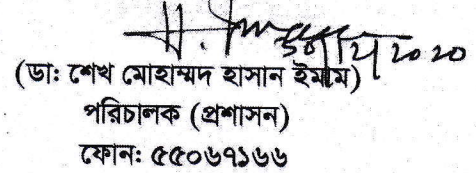 (ডাঃ শেখ মোহাম্মদ হাসান ইমাম)
পরিচালক (প্রশাসন)
ফোন: ৫৫০৬৭১৬৬